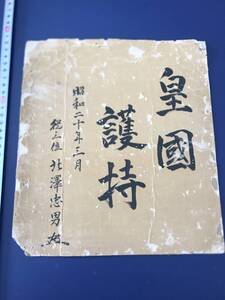 皇國
護持
昭和二十年三月
従三位 北澤忠男